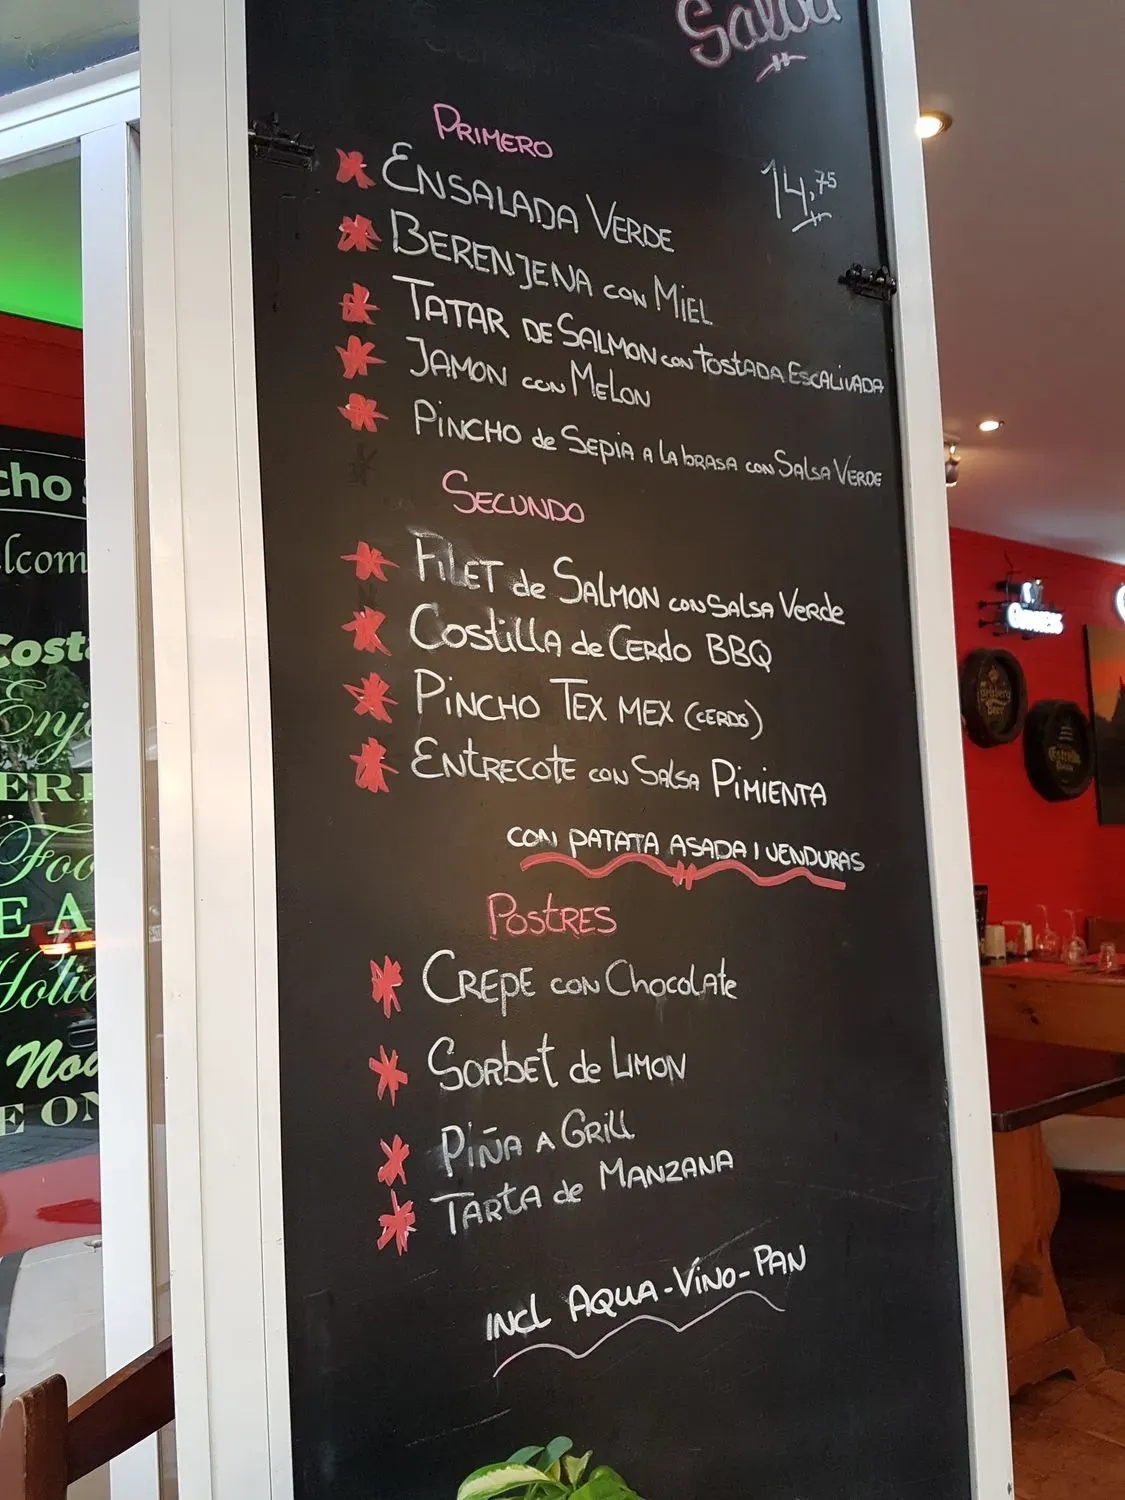 Salou
PRIMERO
14,75
ENSALADA VERDE
BERENJENA CON MIEL
TATAR DE SALMON CON TOSTADA ESCALIVADA
JAMON CON MELON
PINCHO de SEPIA A LA brASA CON SALSA VERDE
SECUNDO
FILET de SALMON CON SALSA VERde
COSTILLA de CERDO BBQ
PINCHO TEX MEX (CERDO)
ENTRECOTE CON SALSA PIMIENTA
CON PATATA ASADA I VENDURAS
POSTRES
CREPE CON CHOCOLATE
SORBET de LIMON
PIÑA A GRILL
TARTA de MANZANA
INCL AQUA-VINO-PAN
cho
lcom
Cost
Enj
ER
Foo
E A
Holid
Nou
E ON
Carlsberg
Beer
Estrella